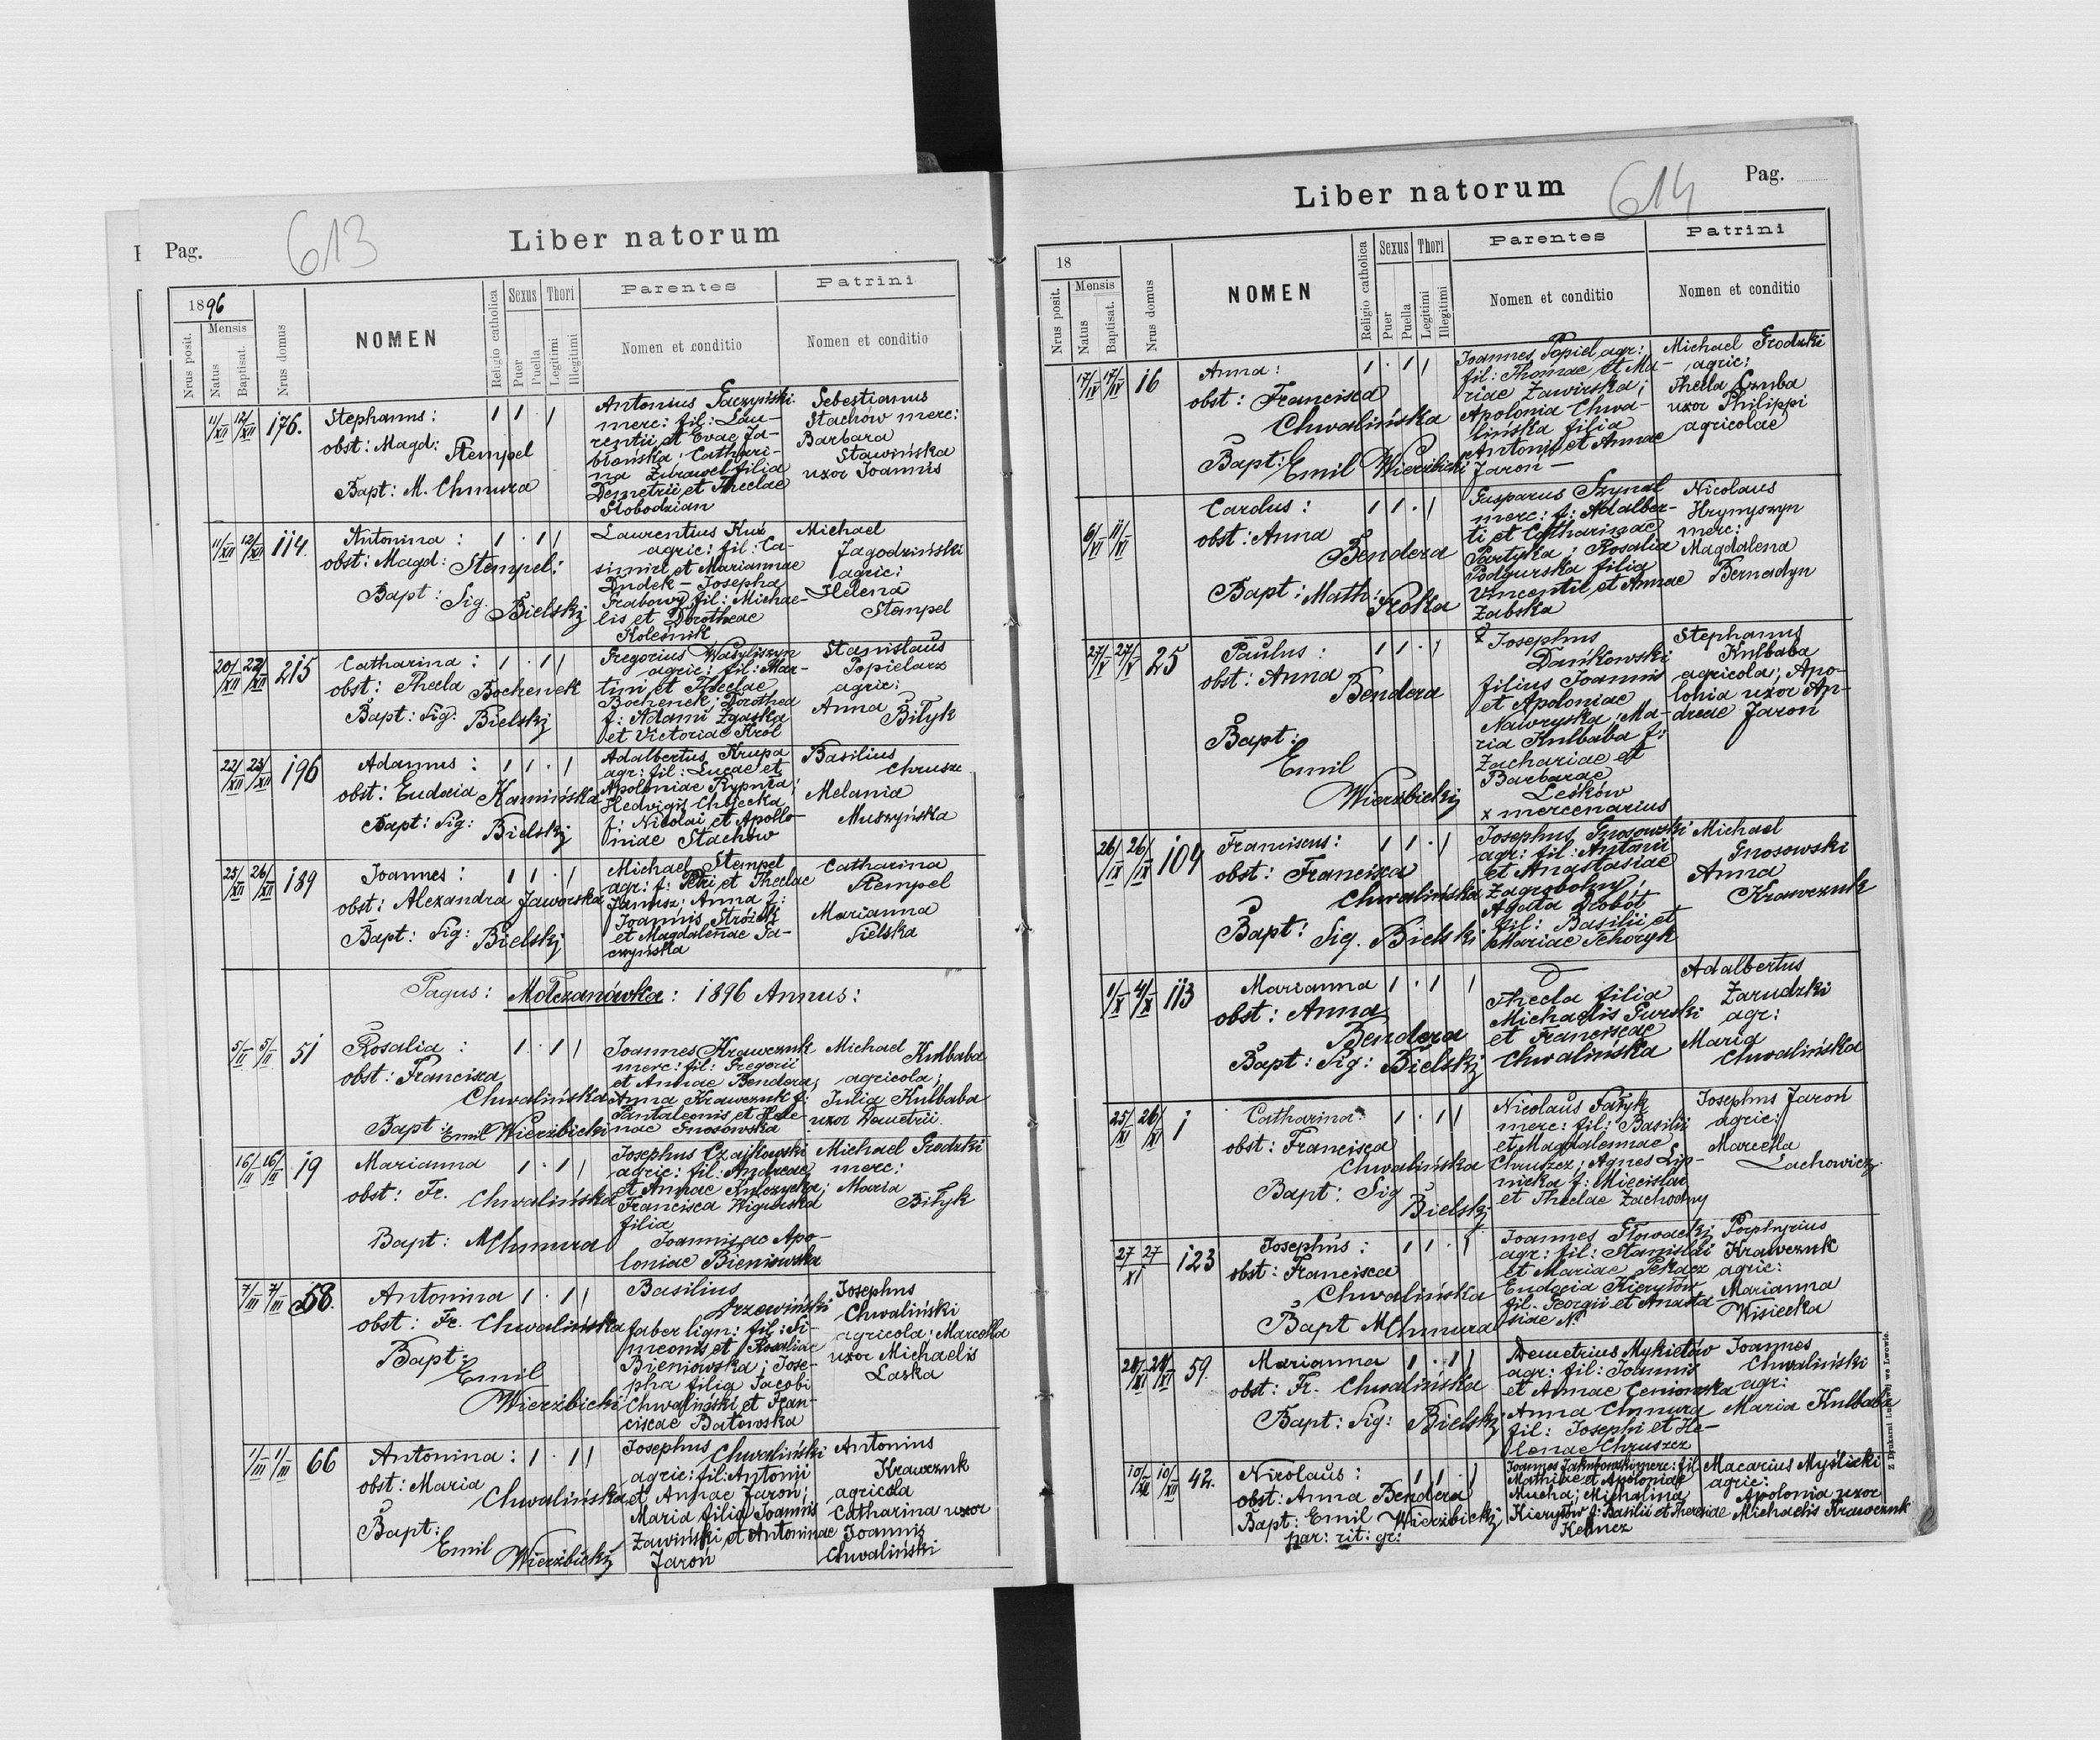 Pag.
613
Liber natorum
1896
Mensis
Nrus posit.
Natus
Baptisat.
Nrus domus
NOMEN
Religio catholica
Sexus
Puer
Puella
Thori
Legitimi
Illegitimi
Parentes
Nomen et conditio
Patrini
Nomen et conditio
11/XII 12/XII 176.
Stephanus:
obst: Magd: Stempel
Bapt: M. Chmura
1 1 . 1
Antonius Gaczyński
merc: fil: Lau-
rentii et Evae Ja-
błońska; Cathari-
na Żurawel filia
Demetrii et Theclae
Słobodzian
Sebestianus
Stachów merc:
Barbara
Stawińska
uxor Joannis
11/XII 12/XII 114.
Antonina:
obst: Magd: Stempel:
Bapt: Sig. Bielskj
1 . 1 1
Laurentius Kuź
agric: fil: Ca-
simiri et Mariannae
Dudek - Josepha
Grabowy fil: Michae-
lis et Dorotheae
Koleśnik
Michael
Jagodziński
agric:
Helena
Stempel
20/XII 22/XII 215
Catharina:
obst: Thecla Bochenek
Bapt: Sig: Bielskj
1 . 1 1
Gregorius Wasyliszyn
agric: fil: Mar-
tini et Theclae
Bochenek; Dorothea
f: Adami Zgaska
et Victoriae Król
Stanislaus
Popielarz
agric:
Anna
Biłyk
22/XII 23/XII 196
Adamus:
obst: Eudoxia Kamińska
Bapt: Sig: Bielskj
1 1 . 1
Adalbertus Krupa
agr: fil: Lucae et
Apoloniae Rypnta;
Hedvigis Chojecka
f: Nicolai et Apollo-
niae Stachów
Basilius
Chrusze
Melania
Muszyńska
25/XII 26/XII 189
Joannes:
obst: Alexandra Jaworska
Bapt: Sig: Bielskj
1 1 . 1
Michael Stempel
agr: f: Petri et Theclae
Janusz; Anna f:
Joannis Stróżik
et Magdalenae Ga-
czyńska
Catharina
Stempel
Marianna
Sielska
Pagus: Mołczanówka: 1896 Annus:
5/II 5/II 51
Rosalia:
obst: Francisca
Chwalińska
Bapt: Emil Wierzbicki
1 . 1 1
Joannes Krawczuk
merc: fil: Gregorii
et Annae Bendera;
Anna Krawczuk f:
Pantaleonis et Hele-
nae Gnosowska
Michael Kulbaba
agricola;
Julia Kulbaba
uxor Demetrii.
16/II 16/II 19
Marianna
obst: Fr. Chwalińska
Bapt: MChmura
1 . 1 1
Josephus Czajkowski
agric: fil: Andreae
et Annae Kulczycka;
Francisca Wigurska
filia
Joannis ac Apo-
loniae Bieniowska
Michael Grodzki
merc:
Maria
Biłyk
7/III 7/III 58.
Antonina
obst: Fr. Chwalińska
Bapt:
Emil
Wierzbicki
1 . 1 1
Basilius
Arzewiński
faber lign: fil: Si-
meonis et Rosaliae
Bieniowska; Jose-
pha filia Jacobi
Chwaliński et Fran-
ciscae Batowska
Josephus
Chwaliński
agricola; Marcella
uxor Michaelis
Laska
1/III 1/III 66
Antonina:
obst: Maria
Chwalińska
Bapt:
Emil
Wierzbickj
1 . 1 1
Josephus Chwaliński
agric: fil: Antonii
et Annae Jaroń;
Maria filia Joannis
Zawiński et Antoninae
Jaroń
Antonius
Krawczuk
agricola
Catharina uxor
Joannis
Chwaliński
Liber natorum
614
Pag.
18
Mensis
Nrus posit.
Natus
Baptisat.
Nrus domus
NOMEN
Religio catholica
Sexus
Puer
Puella
Thori
Legitimi
Illegitimi
Parentes
Nomen et conditio
Patrini
Nomen et conditio
17/IV 17/IV 16
Anna:
obst: Francisca
Chwalińska
Bapt: Emil Wierzbicki
1 . 1 1
Joannes Popiel agr:
fil: Thomae et Ma-
riae Zawirska;
Apolonia Chwa-
lińska filia
Antonii et Annae
Jaroń —
Michael Grodzki
agric:
Thecla Dzuba
uxor Philippi
agricolae
6/VI 11/VI
Carolus:
obst: Anna
Bendera
Bapt: Math: Skółka
1 1 . 1
Gasparus Szynal
merc: f: Adalber-
ti et Catharinae
Partyka; Rosalia
Podgurska filia
Vincentii et Annae
Żabska
Nicolaus
Hrynyszyn
merc:
Magdalena
Bernadyn
27/V 27/V 25
Paulus:
obst: Anna
Bendera
Bapt:
Emil
Wierzbickj
1 1 . 1
Josephus
Dańkowski
filius Joannis
et Apoloniae
Nawryska; Ma-
ria Kulbaba f:
Zachariae et
Barbarae
Leśków
x mercenarius
Stephanus
Kulbaba
agricola; Apo-
lonia uxor An-
dreae Jaroń
26/IX 26/IX 104
Franciscus:
obst: Francisca
Chwalińska
Bapt: Sig. Bielski
1 1 . 1
Josephus Gnosowski
agr: fil: Antonii
et Anastasiae
Zagrobolny;
Agata Drobót
fil: Basilii et
Mariae Tchoryk
Michael
Gnosowski
Anna
Krawczuk
1/X 4/X 113
Marianna
obst: Anna
Bendera
Bapt: Sig: Bielskj
1 . 1 1
Thecla filia
Michaelis Gurski
et Franciscae
Chwalińska
Adalbertus
Zarudzki
agr:
Maria
Chwalińska
25/XI 26/XI 1
Catharina:
obst: Francisca
Chwalińska
Bapt: Sig
Bielskj
1 . 1 1
Nicolaus Fałyk
merc: fil: Basilii
et Magdalenae
Chruszcz; Agnes Lip-
nicka f: Miecislai
et Theclae Zachodny
Josephus Jaroń
agric:
Marcella
Lachowicz
27 27/XI 123
Josephus:
obst: Francisca
Chwalińska
Bapt MChmura
1 1 . 1
Joannes Słowackj
agr: fil: Stanislai
et Mariae Pekacz
Eudoxia Kieryłów
fil. Georgii et Anasta
siae N
Porphyrius
Krawczuk
agric:
Marianna
Wisiecka
28/XI 28/XI 59.
Marianna
obst: Fr. Chwalińska
Bapt: Sig: Bielskj
1 . 1 1
Demetrius Mykietów
agr: fil: Joannis
et Annae Ceniowska
Anna Chmura
fil: Josephi et He-
lenae Chruszcz
Joannes
Chwaliński
agr:
Maria Kulbaba
10/XII 10/XII 42.
Nicolaus:
obst: Anna Bendera
Bapt: Emil Wierzbickj
par: rit: gr:
1 1 . 1
Joannes Jakubowski merc: fil
Mathiae et Apoloniae
Mucha; Michalina
Kieryłów f: Basilii et Theresiae
Kelncz
Macarius Myślicki
agric:
Apolonia uxor
Michaelis Krawczuk